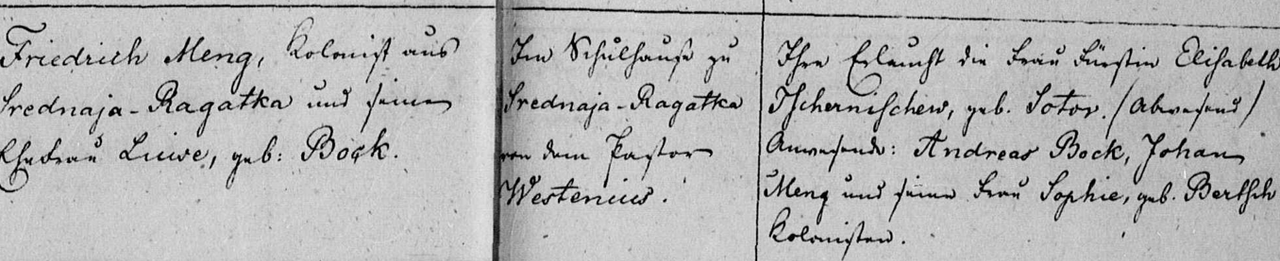 Friedrich Meng, Kolonist aus
Srednaja-Ragatka und seine
Ehefrau Luise, geb: Bock.
Im Schulhause zu
Srednaja-Ragatka
von dem Pastor
Westenius.
Ihre Erlaucht die Frau Fürstin Elisabeth
Tschernischew, geb. Sotov. (Abwesend)
Anwesende: Andreas Bock, Johan
Meng und seine Frau Sophie, geb. Bertsch
Kolonisten.